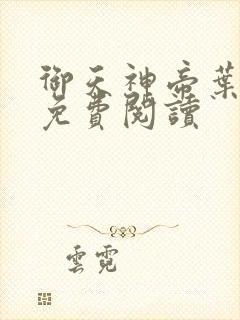 御天神帝葉
免費閱讀
雲霓